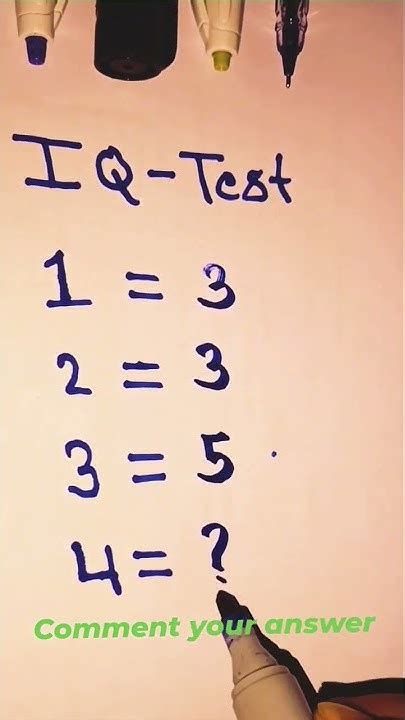 IQ-Test
1 = 3
2 = 3
3 = 5
4 = ?
Comment your answer